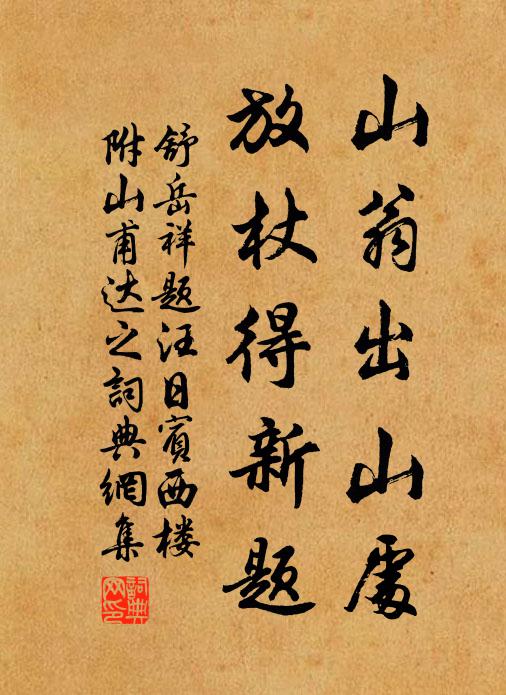 山翁出山處
放杖得新题
舒岳祥题汪日賓西楼
附山甫达之詞典網集
詞典网印